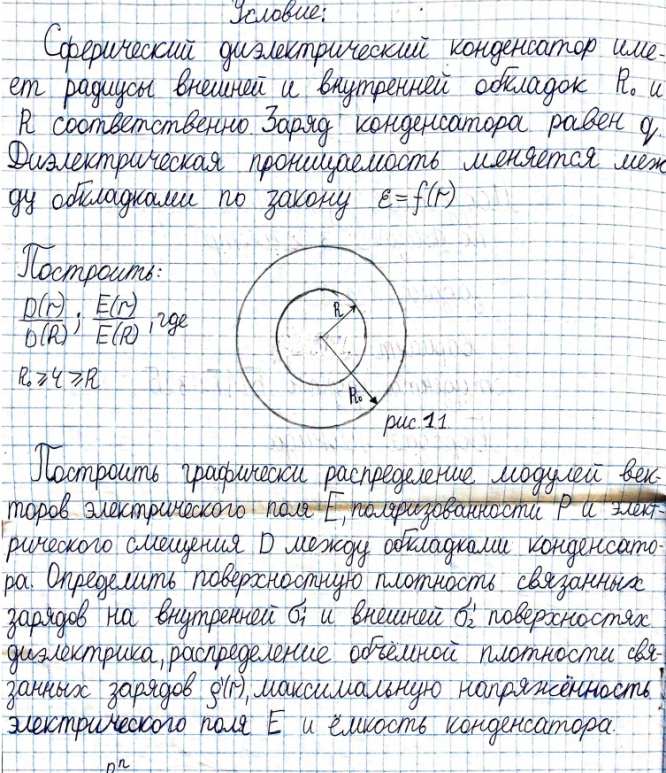 Условие:
Сферический диэлектрический конденсатор име-
ет радиусы внешней и внутренней обкладок R₀ и
R соответственно Заряд конденсатора равен q.
Диэлектрическая проницаемость меняется меж
ду обкладками по закону ε=f(r)
Построить:
D(r)/D(R) ; E(r)/E(R), где
R₀ ≥ r ≥ R
R
R₀
рис. 1.1
Построить графически распределение модулей век-
торов электрического поля E, поляризованности P и элект-
рического смещения D между обкладками конденсато-
ра. Определить поверхностную плотность связанных
зарядов на внутренней σ₁' и внешней σ₂' поверхностях
диэлектрика, распределение объёмной плотности свя-
занных зарядов ρ'(r), максимальную напряжённость
электрического поля E и ёмкость конденсатора.